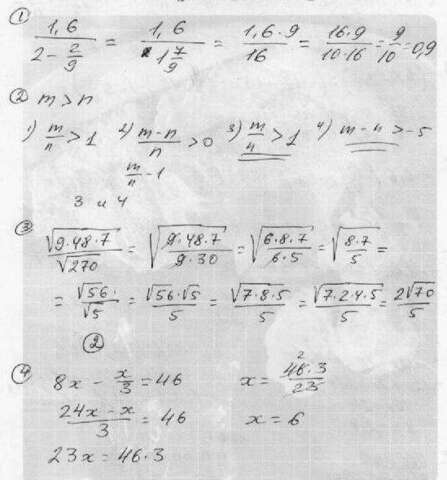 ① 1,6 / (2 - 2/9) = 1,6 / (1 7/9) = 1,6·9 / 16 = 16·9 / 10·16 = 9/10 = 0,9
② m > n
1) m/n > 1 2) (m-n)/n > 0 3) m/4 > 1 4) m - n > -5
m/n - 1
3 и 4
③ √(9·48·7) / √270 = √(9·48·7 / 9·30) = √(6·8·7 / 6·5) = √(8·7 / 5) =
= √56· / √5 = √56·√5 / 5 = √(7·8·5) / 5 = √(7·2·4·5) / 5 = 2√70 / 5
②
④ 8x - x/3 = 46 x = 46·3 / 23 2
(24x - x) / 3 = 46 x = 6
23x = 46·3